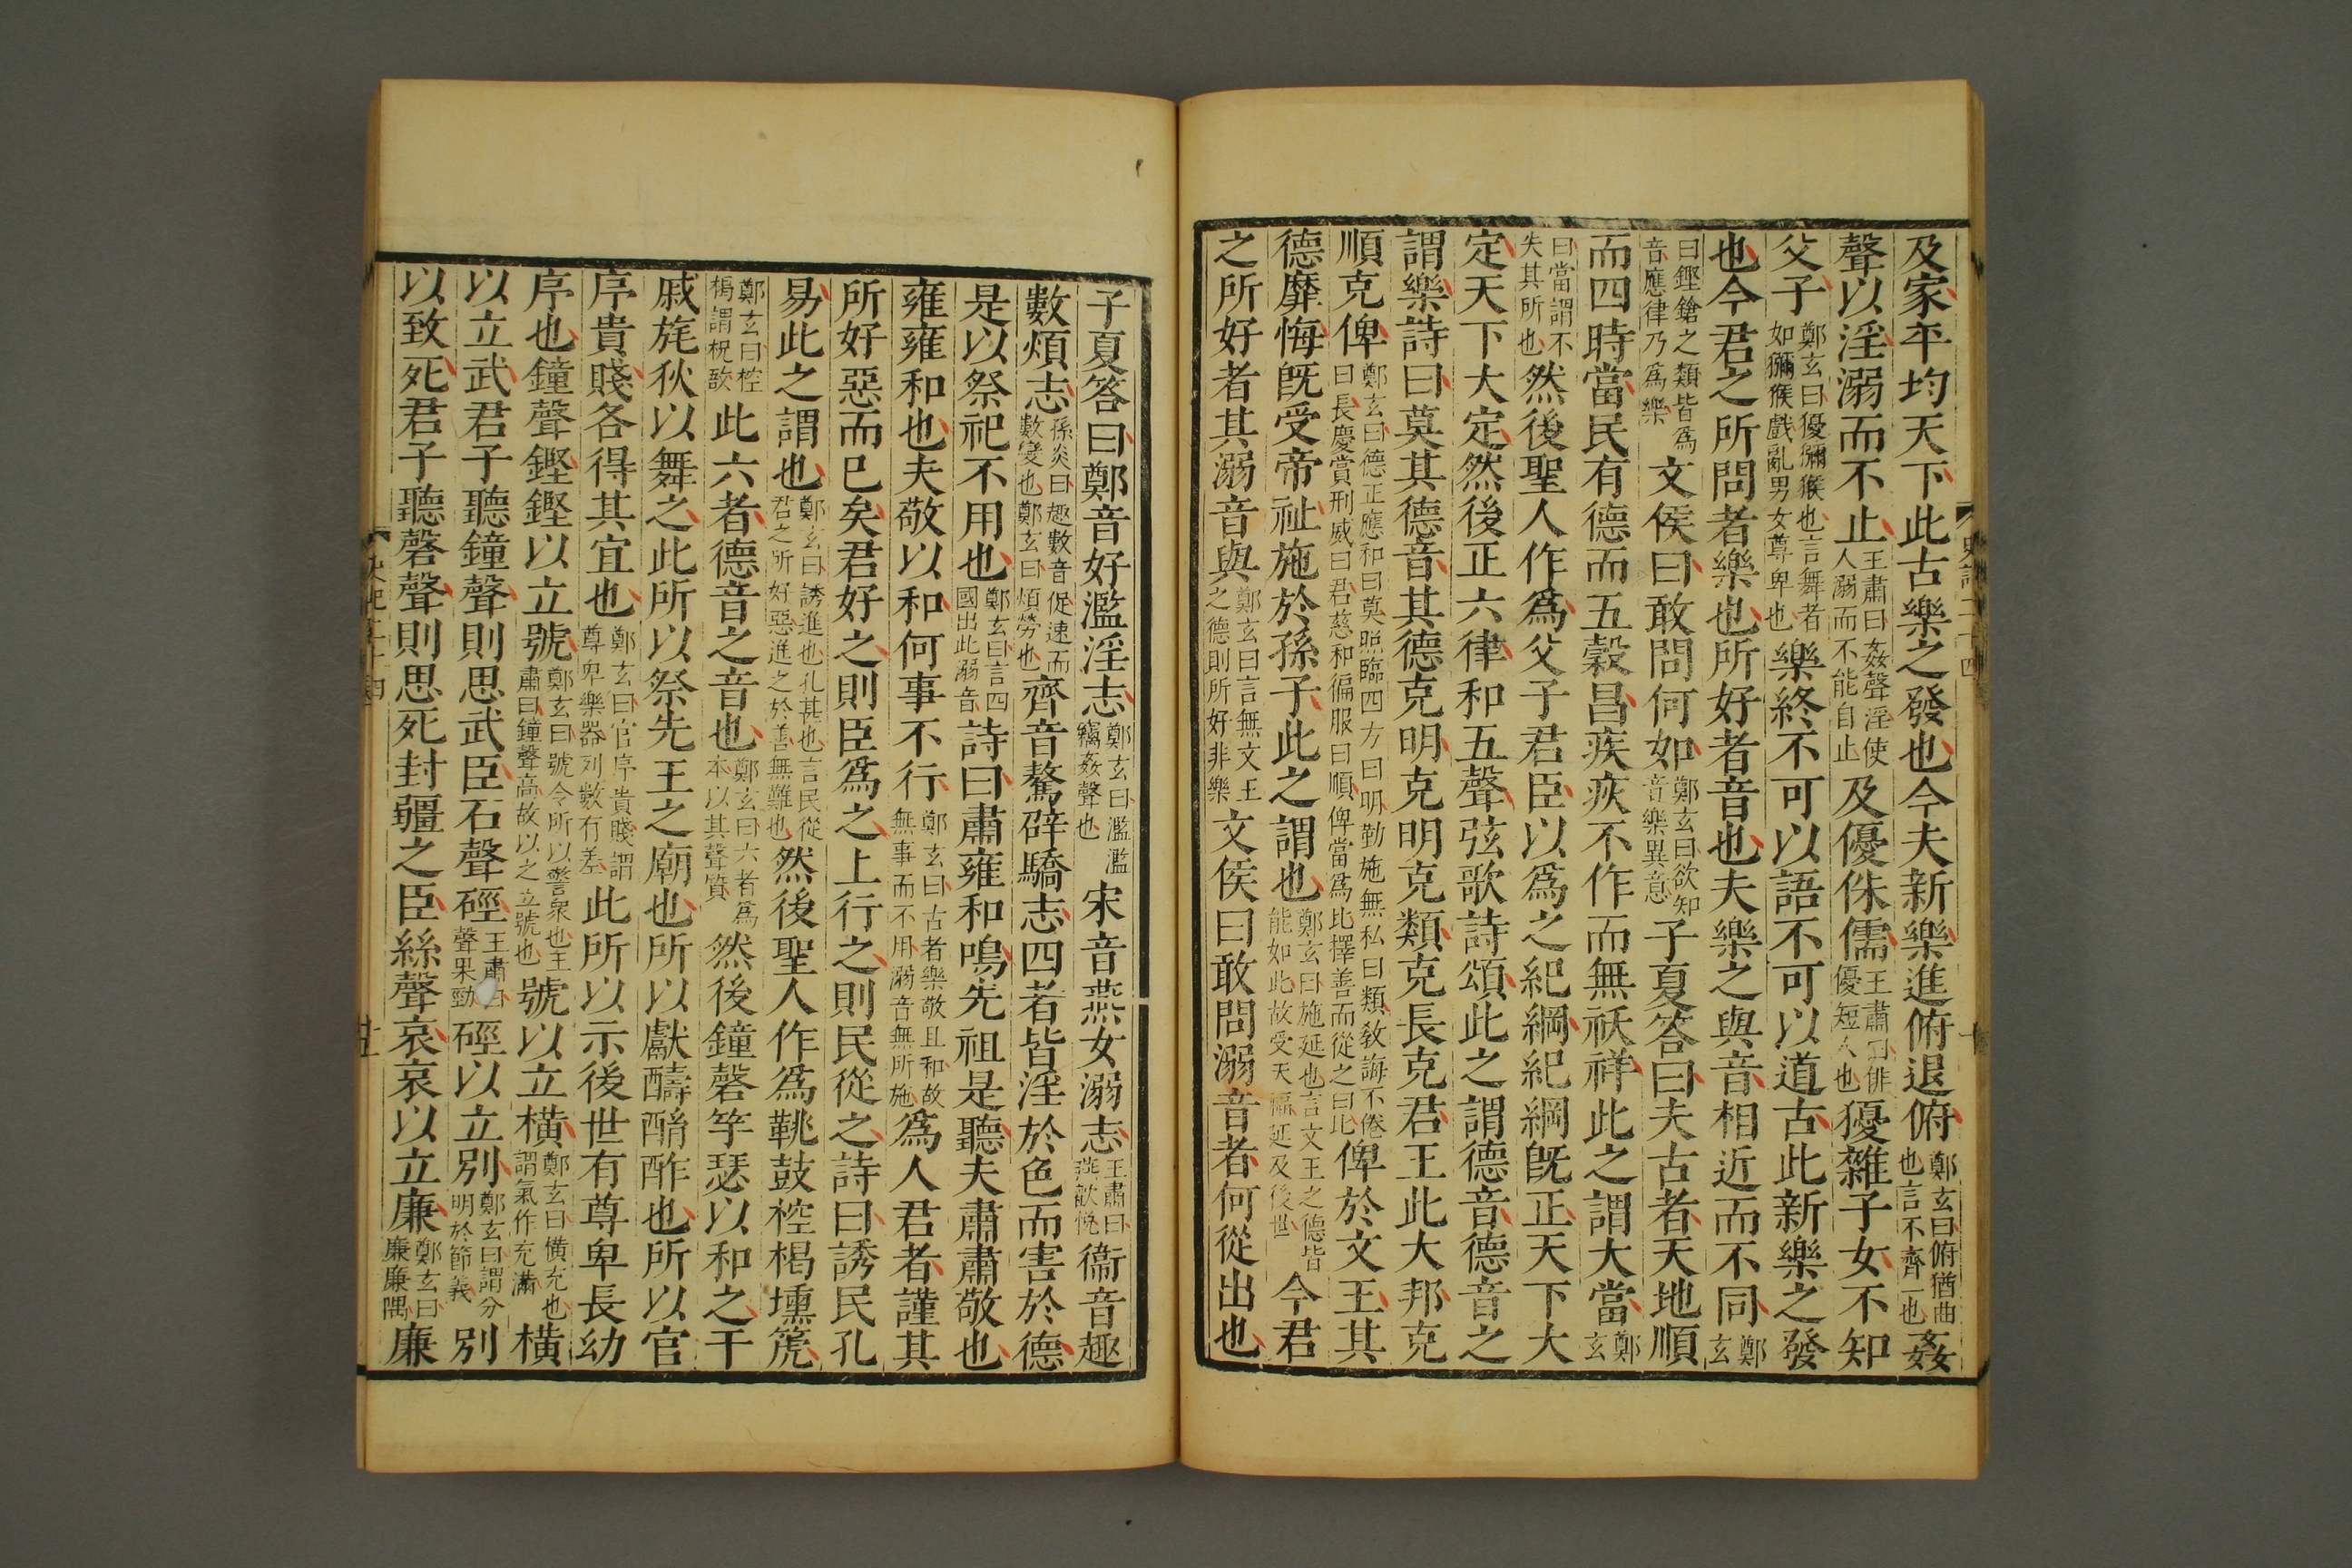 及家平均天下此古樂之發也今夫新樂進俯退俯鄭玄曰俯猶曲也言不齊一也姦
聲以淫溺而不止王肅曰姦聲淫使人溺而不能自止及優侏儒王肅曰俳優短人也獶雜子女不知
父子鄭玄曰優獮猴也言舞者如獮猴戲亂男女尊卑也樂終不可以語不可以道古此新樂之發
也今君之所問者樂也所好者音也夫樂之與音相近而不同鄭玄
曰鏗鎗之類皆爲音應律乃爲樂文侯曰敢問何如鄭玄曰欲知音樂異意子夏答曰夫古者天地順
而四時當民有德而五穀昌疾疢不作而無祅祥此之謂大當鄭玄
曰當謂不失其所也然後聖人作爲父子君臣以爲之紀綱紀綱旣正天下大
定天下大定然後正六律和五聲弦歌詩頌此之謂德音德音之
謂樂詩曰莫其德音其德克明克明克類克長克君王此大邦克
順克俾鄭玄曰德正應和曰莫照臨四方曰明勤施無私曰類敎誨不倦曰長慶賞刑威曰君慈和徧服曰順俾當爲比擇善而從之曰比俾於文王其
德靡悔旣受帝祉施於孫子此之謂也鄭玄曰施延也言文王之德皆能如此故受天福延及後世今君
之所好者其溺音與鄭玄曰言無文王之德則所好非樂文侯曰敢問溺音者何從出也
子夏答曰鄭音好濫淫志鄭玄曰濫濫竊姦聲也宋音燕女溺志王肅曰燕歡悅衞音趣
數煩志孫炎曰趣數音促速而數變也鄭玄曰煩勞也齊音驁辟驕志四者皆淫於色而害於德
是以祭祀不用也鄭玄曰言四國出此溺音詩曰肅雍和鳴先祖是聽夫肅肅敬也
雍雍和也夫敬以和何事不行鄭玄曰古者樂敬且和故無事而不用溺音無所施爲人君者謹其
所好惡而已矣君好之則臣爲之上行之則民從之詩曰誘民孔
易此之謂也鄭玄曰誘進也孔甚也言民從君之所好惡進之於善無難也然後聖人作爲鞉鼓椌楬壎箎
鄭玄曰椌楬謂柷敔此六者德音之音也鄭玄曰六者爲本以其聲質然後鐘磬竽瑟以和之干
戚旄狄以舞之此所以祭先王之廟也所以獻酬酳酢也所以官
序貴賤各得其宜也鄭玄曰官序貴賤謂尊卑樂器列數有差此所以示後世有尊卑長幼
序也鐘聲鏗鏗以立號鄭玄曰號令所以警衆也王肅曰鐘聲高故以之立號也號以立橫鄭玄曰橫充也謂氣作充滿橫
以立武君子聽鐘聲則思武臣石聲硜王肅曰聲果勁硜以立別鄭玄曰謂分明於節義別
以致死君子聽磬聲則思死封疆之臣絲聲哀哀以立廉鄭玄曰廉廉隅廉